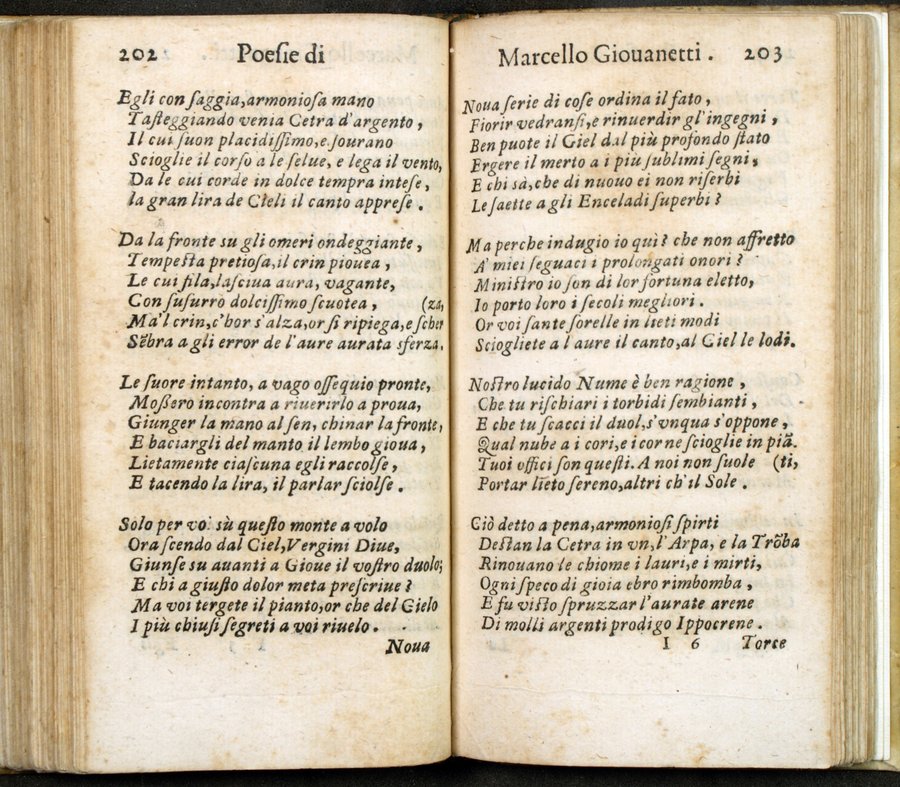 202 Poeſie di
Egli con ſaggia,armonioſa mano
Taſteggiando venia Cetra d'argento ,
Il cui ſuon placidiſſimo,e ſourano
Scioglie il corſo a le ſelue, e lega il vento,
Da le cui corde in dolce tempra inteſe ,
la gran lira de Cieli il canto appreſe .
Da la fronte su gli omeri ondeggiante ,
Tempeſta pretioſa,il crin piouea ,
Le cui fila,laſciua aura, vagante,
Con ſuſurro dolciſſimo ſcuotea , (za,
Ma'l crin,c'hor s'alza,or ſi ripiega,e ſcher
Sẽbra a gli error de l'aure aurata sferza.
Le ſuore intanto, a vago oſſequio pronte,
Moſſero incontra a riuerirlo a proua,
Giunger la mano al ſen, chinar la fronte,
E baciargli del manto il lembo gioua,
Lietamente ciaſcuna egli raccolſe ,
E tacendo la lira, il parlar ſciolſe .
Solo per voi sù queſto monte a volo
Ora ſcendo dal Ciel,Vergini Diue,
Giunſe su auanti a Gioue il voſtro duolo;
E chi a giuſto dolor meta preſcriue ?
Ma voi tergete il pianto,or che del Cielo
I più chiuſi ſegreti a voi riuelo .
Noua
Marcello Giouanetti . 203
Noua ſerie di coſe ordina il fato ,
Fiorir vedranſi,e rinuerdir gl'ingegni ,
Ben puote il Ciel dal più profondo ſtato
Ergere il merto a i più ſublimi ſegni ,
E chi sà,che di nuouo ei non riſerbi
Le ſaette a gli Enceladi ſuperbi ?
Ma perche indugio io qui? che non affretto
A' miei ſeguaci i prolongati onori ?
Miniſtro io ſon di lor fortuna eletto,
Io porto loro i ſecoli megliori .
Or voi ſante ſorelle in lieti modi
Sciogliete a l aure il canto,al Ciel le lodi.
Noſtro lucido Nume è ben ragione ,
Che tu riſchiari i torbidi ſembianti ,
E che tu ſcacci il duol,s'vnqua s'oppone ,
Qual nube a i cori,e i cor ne ſcioglie in piã.
Tuoi offici ſon queſti. A noi non ſuole (ti,
Portar lieto ſereno,altri ch'il Sole .
Ciò detto a pena,armonioſi ſpirti
Deſtan la Cetra in vn,l'Arpa, e la Trõba
Rinouano le chiome i lauri,e i mirti,
Ogni ſpeco di gioia ebro rimbomba ,
E fu viſto ſpruzzar l'aurate arene
Di molli argenti prodigo Ippocrene .
I 6 Torce